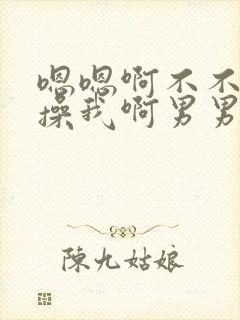 嗯嗯啊不不
操我啊男男
陳九姑娘